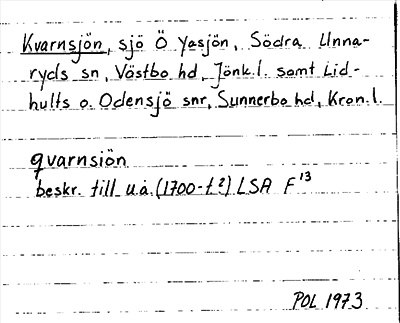 Kvarnsjön, sjö Ö Yasjön, Södra Unna-
ryds sn, Västbo hd, Jönk.l. samt Lid-
hults o. Odensjö snr, Sunnerbo hd, Kron.l.
qvarnsiön
beskr. till u.å. (1700-t?) LSA F 13
POL 1973